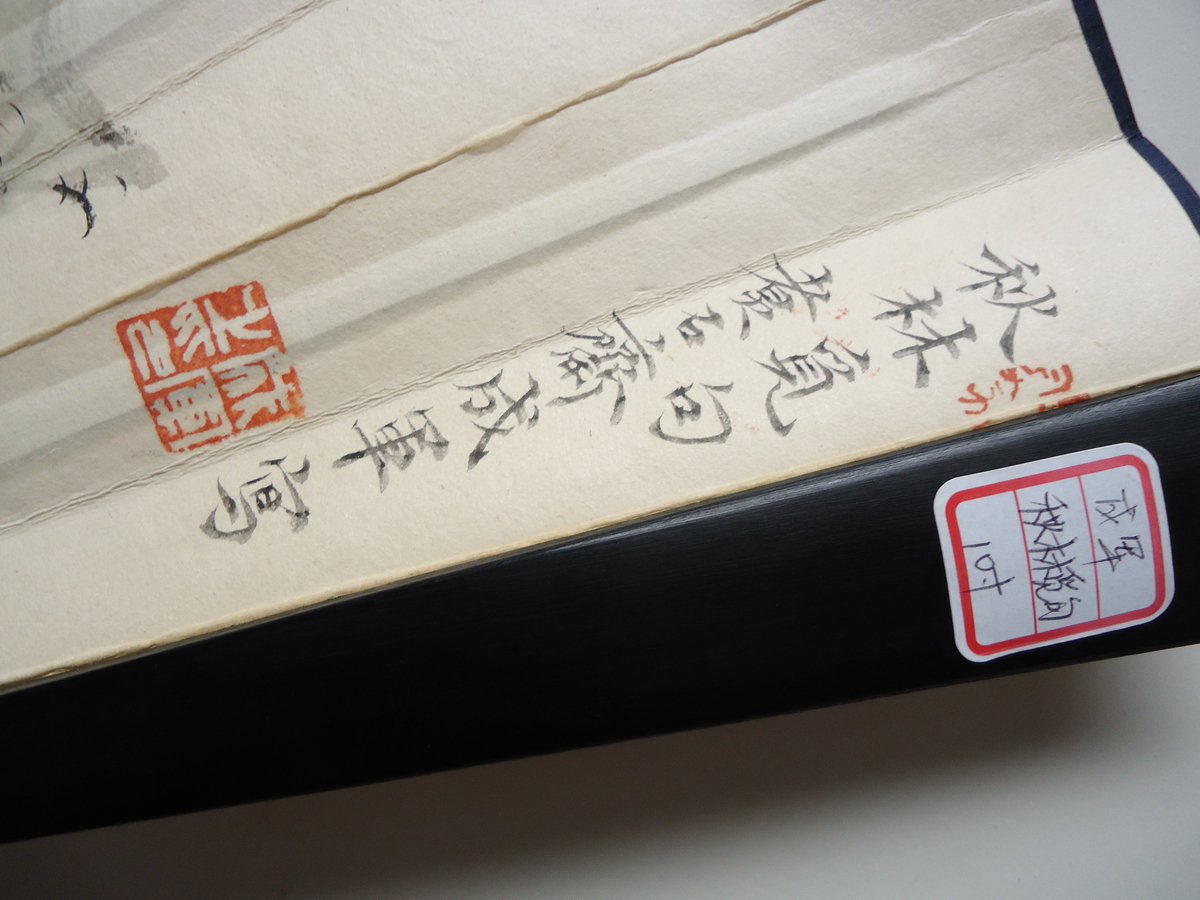 秋林覓句
黄石齋成軍寫
成军
秋林覓句
10寸